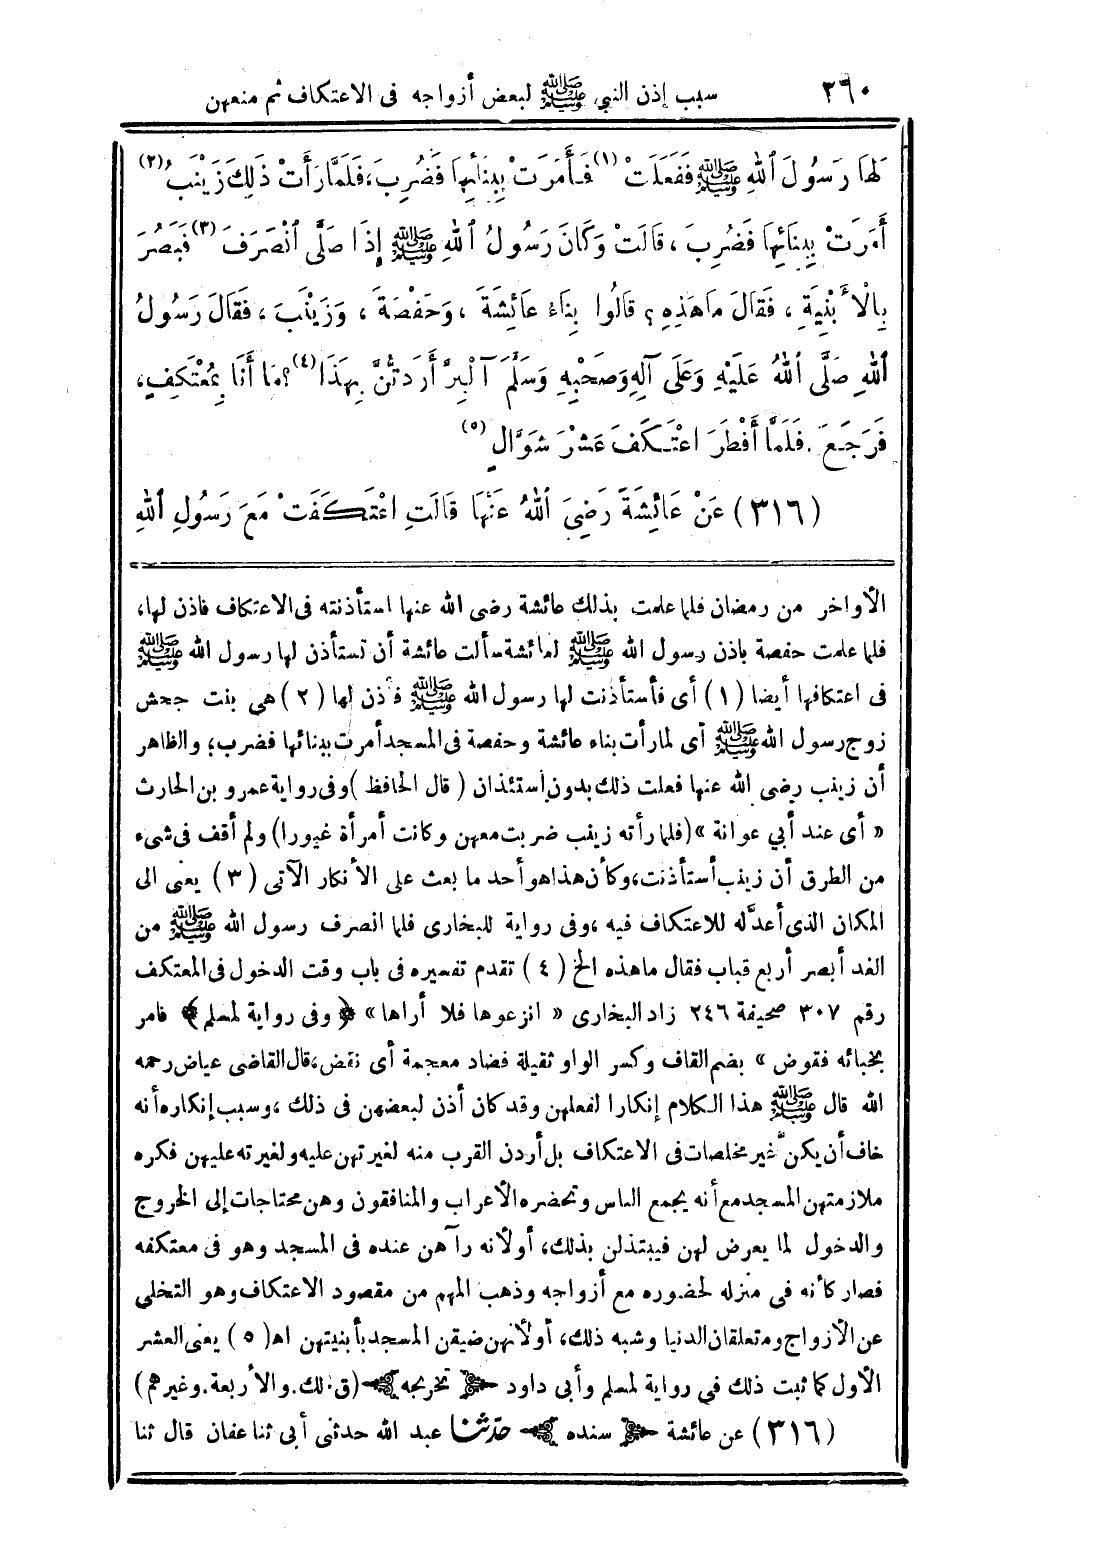 ٢٦٠ سبب إذن النبي ﷺ لبعض أزواجه فى الاعتكاف ثم منعهن
لَهَا رَسُولَ اللهِ ﷺ فَفَعَلَتْ (١) فَأَمَرَتْ بِبِنَائِهَا فَضُرِبَ، فَلَمَّا رَأَتْ ذَلِكَ زَيْنَبُ (٢)
أَمَرَتْ بِبِنَائِهَا فَضُرِبَ، قَالَتْ وَكَانَ رَسُولُ اللهِ ﷺ إِذَا صَلَّى انْصَرَفَ (٣) فَبَصُرَ
بِالْأَبْنِيَةِ، فَقَالَ مَا هَذِهِ؟ قَالُوا بِنَاءُ عَائِشَةَ، وَحَفْصَةَ، وَزَيْنَبَ، فَقَالَ رَسُولُ
اللهِ صَلَّى اللهُ عَلَيْهِ وَعَلَى آلِهِ وَصَحْبِهِ وَسَلَّمَ آلْبِرَّ أَرَدْتُنَّ بِهَذَا (٤)؟ مَا أَنَا بِمُعْتَكِفٍ،
فَرَجَعَ. فَلَمَّا أَفْطَرَ اعْتَكَفَ عَشْرَ شَوَّالٍ (٥)
(٣١٦) عَنْ عَائِشَةَ رَضِيَ اللهُ عَنْهَا قَالَتِ اعْتَكَفَتْ مَعَ رَسُولِ اللهِ
الأواخر من رمضان فلما علمت بذلك عائشة رضى الله عنها استأذنته فى الاعتكاف فاذن لها،
فلما علمت حفصة باذن رسول الله ﷺ لعائشة سألت عائشة أن تستأذن لها رسول الله ﷺ
فى اعتكافها أيضا (١) أى فأستأذنت لها رسول الله ﷺ فأذن لها (٢) هى بنت جحش
زوج رسول الله ﷺ أى لما رأت بناء عائشة وحفصة فى المسجد أمرت ببنائها فضرب؛ والظاهر
أن زينب رضى الله عنها فعلت ذلك بدون إستئذان (قال الحافظ) وفى رواية عمرو بن الحارث
« أى عند أبي عوانة » (فلما رأته زينب ضربت معهن وكانت أمرأة غيورا) ولم أقف فى شىء
من الطرق أن زينب أستأذنت، وكأن هذا هو أحد ما بعث على الأنكار الآتى (٣) يعنى الى
المكان الذى أعدَّه للاعتكاف فيه، وفى رواية للبخارى فلما انصرف رسول الله ﷺ من
الغد أبصر أربع قباب فقال ما هذه الخ (٤) تقدم تفسيره فى باب وقت الدخول فى المعتكف
رقم ٣٠٧ صحيفة ٢٤٦ زاد البخارى « انزعوها فلا أراها » ﴿وفى رواية لمسلم﴾ فامر
بخبائه فقوض » بضم القاف وكسر الواو ثقيلة فضاد معجمة أى نقض، قال القاضى عياض رحمه
الله قال ﷺ هذا الكلام إنكارا لفعلهن وقد كان أذن لبعضهن فى ذلك، وسبب إنكاره أنه
خاف أن يكنَّ غير مخلصات فى الاعتكاف بل أردن القرب منه لغيرتهن عليه ولغيرته عليهن فكره
ملازمتهن المسجد مع أنه يجمع الناس وتحضره الأعراب والمنافقون وهن محتاجات إلى الخروج
والدخول لما يعرض لهن فيبتذلن بذلك، أو لأنه رآهن عنده فى المسجد وهو فى معتكفه
فصار كأنه فى منزله لحضوره مع أزواجه وذهب المهم من مقصود الاعتكاف وهو التخلى
عن الأزواج ومتعلقات الدنيا وشبه ذلك، أو لأنهن ضيقن المسجد بأبنيتهن اهـ (٥) يعنى العشر
الأول كما ثبت ذلك في رواية لمسلم وأبى داود تخريجه (ق. لك. والأربعة. وغيرهم)
(٣١٦) عن عائشة سنده حدّثنا عبد الله حدثنى أبى ثنا عفان قال ثنا